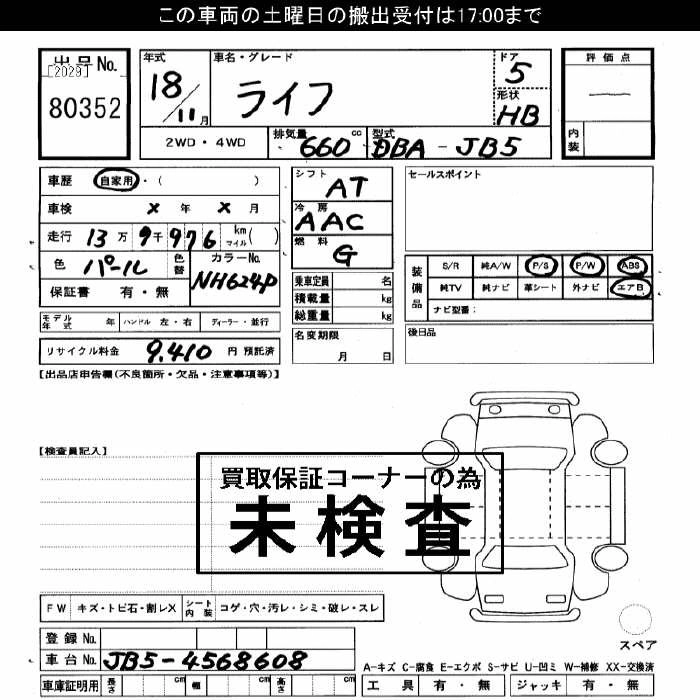 この車両の土曜日の搬出受付は17:00まで
出品No.
[2029]
80352
年式
18/11月
車名・グレード
ライフ
ドア
5
形状
HB
評価点
内装
2WD・4WD
排気量 660 cc
型式 DBA-JB5
車歴 自家用・( )
車検 × 年 × 月
走行 13万9千976 km マイル( )
色 パール
色替
カラーNo. NH624P
保証書 有・無
シフト AT
冷房 AAC
燃料 G
乗車定員 名
積載量 kg
総重量 kg
セールスポイント
装備品
S/R 純A/W P/S P/W ABS
純TV 純ナビ 革シート 外ナビ エアB
ナビ型番:
モデル年式 年 ハンドル 左・右 ディーラー・並行
名変期限
月 日
後日品
リサイクル料金 9,410 円 預託済
【出品店申告欄(不良箇所・欠品・注意事項等)】
【検査員記入】
買取保証コーナーの為
未検査
FW キズ・トビ石・割レX シート内装 コゲ・穴・汚レ・シミ・破レ・スレ
スペア
登録No.
車台No. JB5-4568608
A-キズ C-腐食 E-エクボ S-サビ U-凹ミ W-補修 XX-交換済
車庫証明用 長さ cm 幅 cm 高さ cm
工具 有・無 ジャッキ 有・無